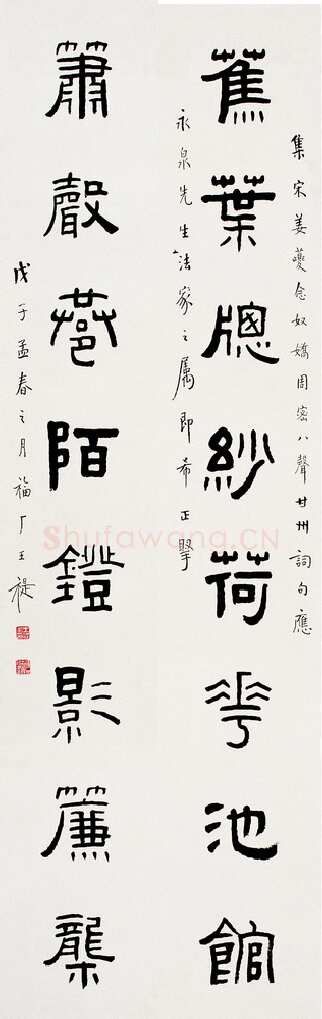 集宋姜夔念奴嬌周密八聲甘州詞句應
蕉葉牕紗荷華池館
永泉先生法家之屬即希正掔
簫聲巷陌鐙影簾櫳
戊子孟春之月福厂王禔
Shufawang.CN